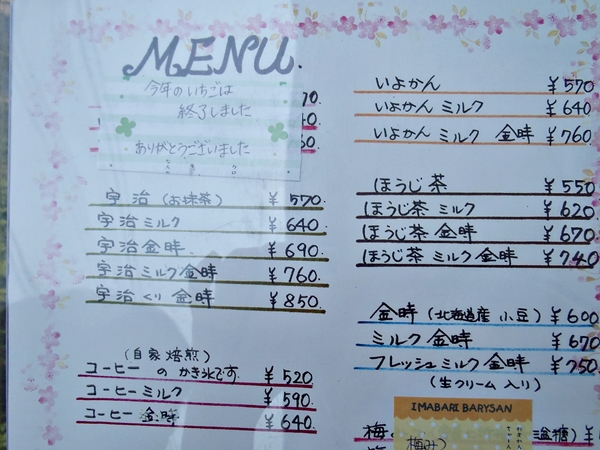 MENU.
今年のいちごは
終了しました
ありがとうございました
70.
40.
60.
宇治 (お抹茶) ¥570.
宇治ミルク ¥640.
宇治金時. ¥690.
宇治ミルク金時 ¥760.
宇治くり金時 ¥850.
(自家焙煎)
コーヒー の かき氷です. ¥520
コーヒーミルク ¥590.
コーヒー金時 ¥640.
いよかん ¥570
いよかん ミルク ¥640
いよかん ミルク 金時 ¥760.
ほうじ茶 ¥550
ほうじ茶 ミルク ¥620
ほうじ茶 金時 ¥670
ほうじ茶 ミルク 金時 ¥740
金時 (北海道産 小豆) ¥600
ミルク 金時 ¥670
フレッシュミルク金時 ¥750.
(生クリーム入り)
IMABARI BARYSAN
梅
梅み
糖)